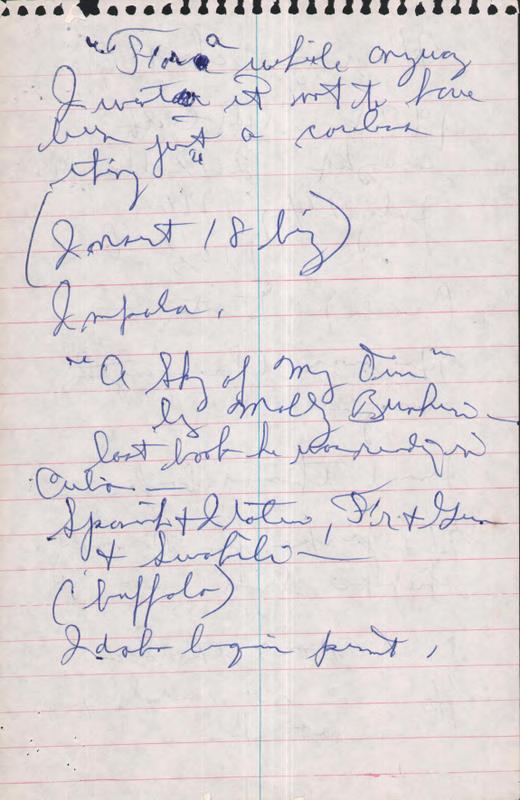 "For a while anyway
I want it not to have
been just a
thing"
(Insert 18 big)
Impala,
"A Sky of My Own"
by Molly Bernheim —
last book he was reading in
Cuba —
Spanish & Italian, Fr & Ger
& Swahili —
(buffalo)
Idaho begin print,